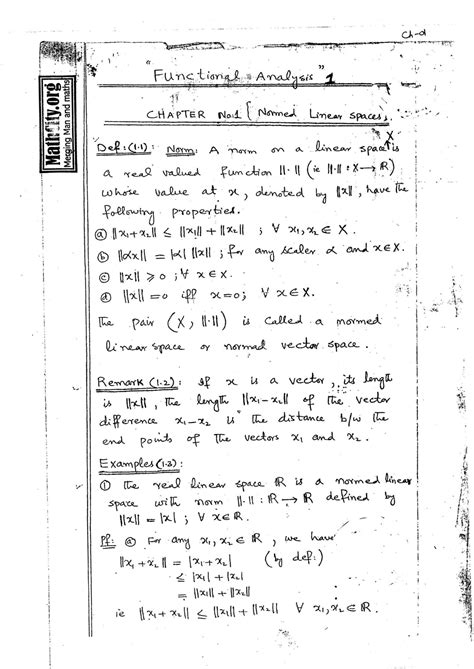 Ch-01
"Functional Analysis" 1
MathCity.org
Merging Man and maths
CHAPTER No:1 [Normed Linear Spaces]
Def:(1.1): Norm: A norm on a linear space is X
a real valued function ‖·‖ (ie ‖·‖ : X → ℝ)
whose value at x, denoted by ‖x‖, have the
following properties.
ⓐ ‖x₁+x₂‖ ≤ ‖x₁‖ + ‖x₂‖ ; ∀ x₁,x₂ ∈ X.
ⓑ ‖αx‖ = |α| ‖x‖ ; for any scaler α and x∈X.
ⓒ ‖x‖ ≥ 0 ; ∀ x ∈ X.
ⓓ ‖x‖ = 0 iff x=0 ; ∀ x ∈ X.
The pair (X, ‖·‖) is called a normed
linear space or normed vector space.
Remark (1.2): If x is a vector, its length
is ‖x‖, the length ‖x₁-x₂‖ of the vector
difference x₁-x₂ is the distance b/w the
end points of the vectors x₁ and x₂.
Examples (1.3):
① The real linear space ℝ is a normed linear
space with norm ‖·‖ : ℝ → ℝ defined by
‖x‖ = |x| ; ∀ x∈ℝ.
Pf: ⓐ For any x₁,x₂ ∈ ℝ, we have
‖x₁+x₂‖ = |x₁+x₂| (by def:)
≤ |x₁| + |x₂|
= ‖x₁‖ + ‖x₂‖
ie ‖x₁+x₂‖ ≤ ‖x₁‖ + ‖x₂‖ ∀ x₁,x₂ ∈ ℝ.